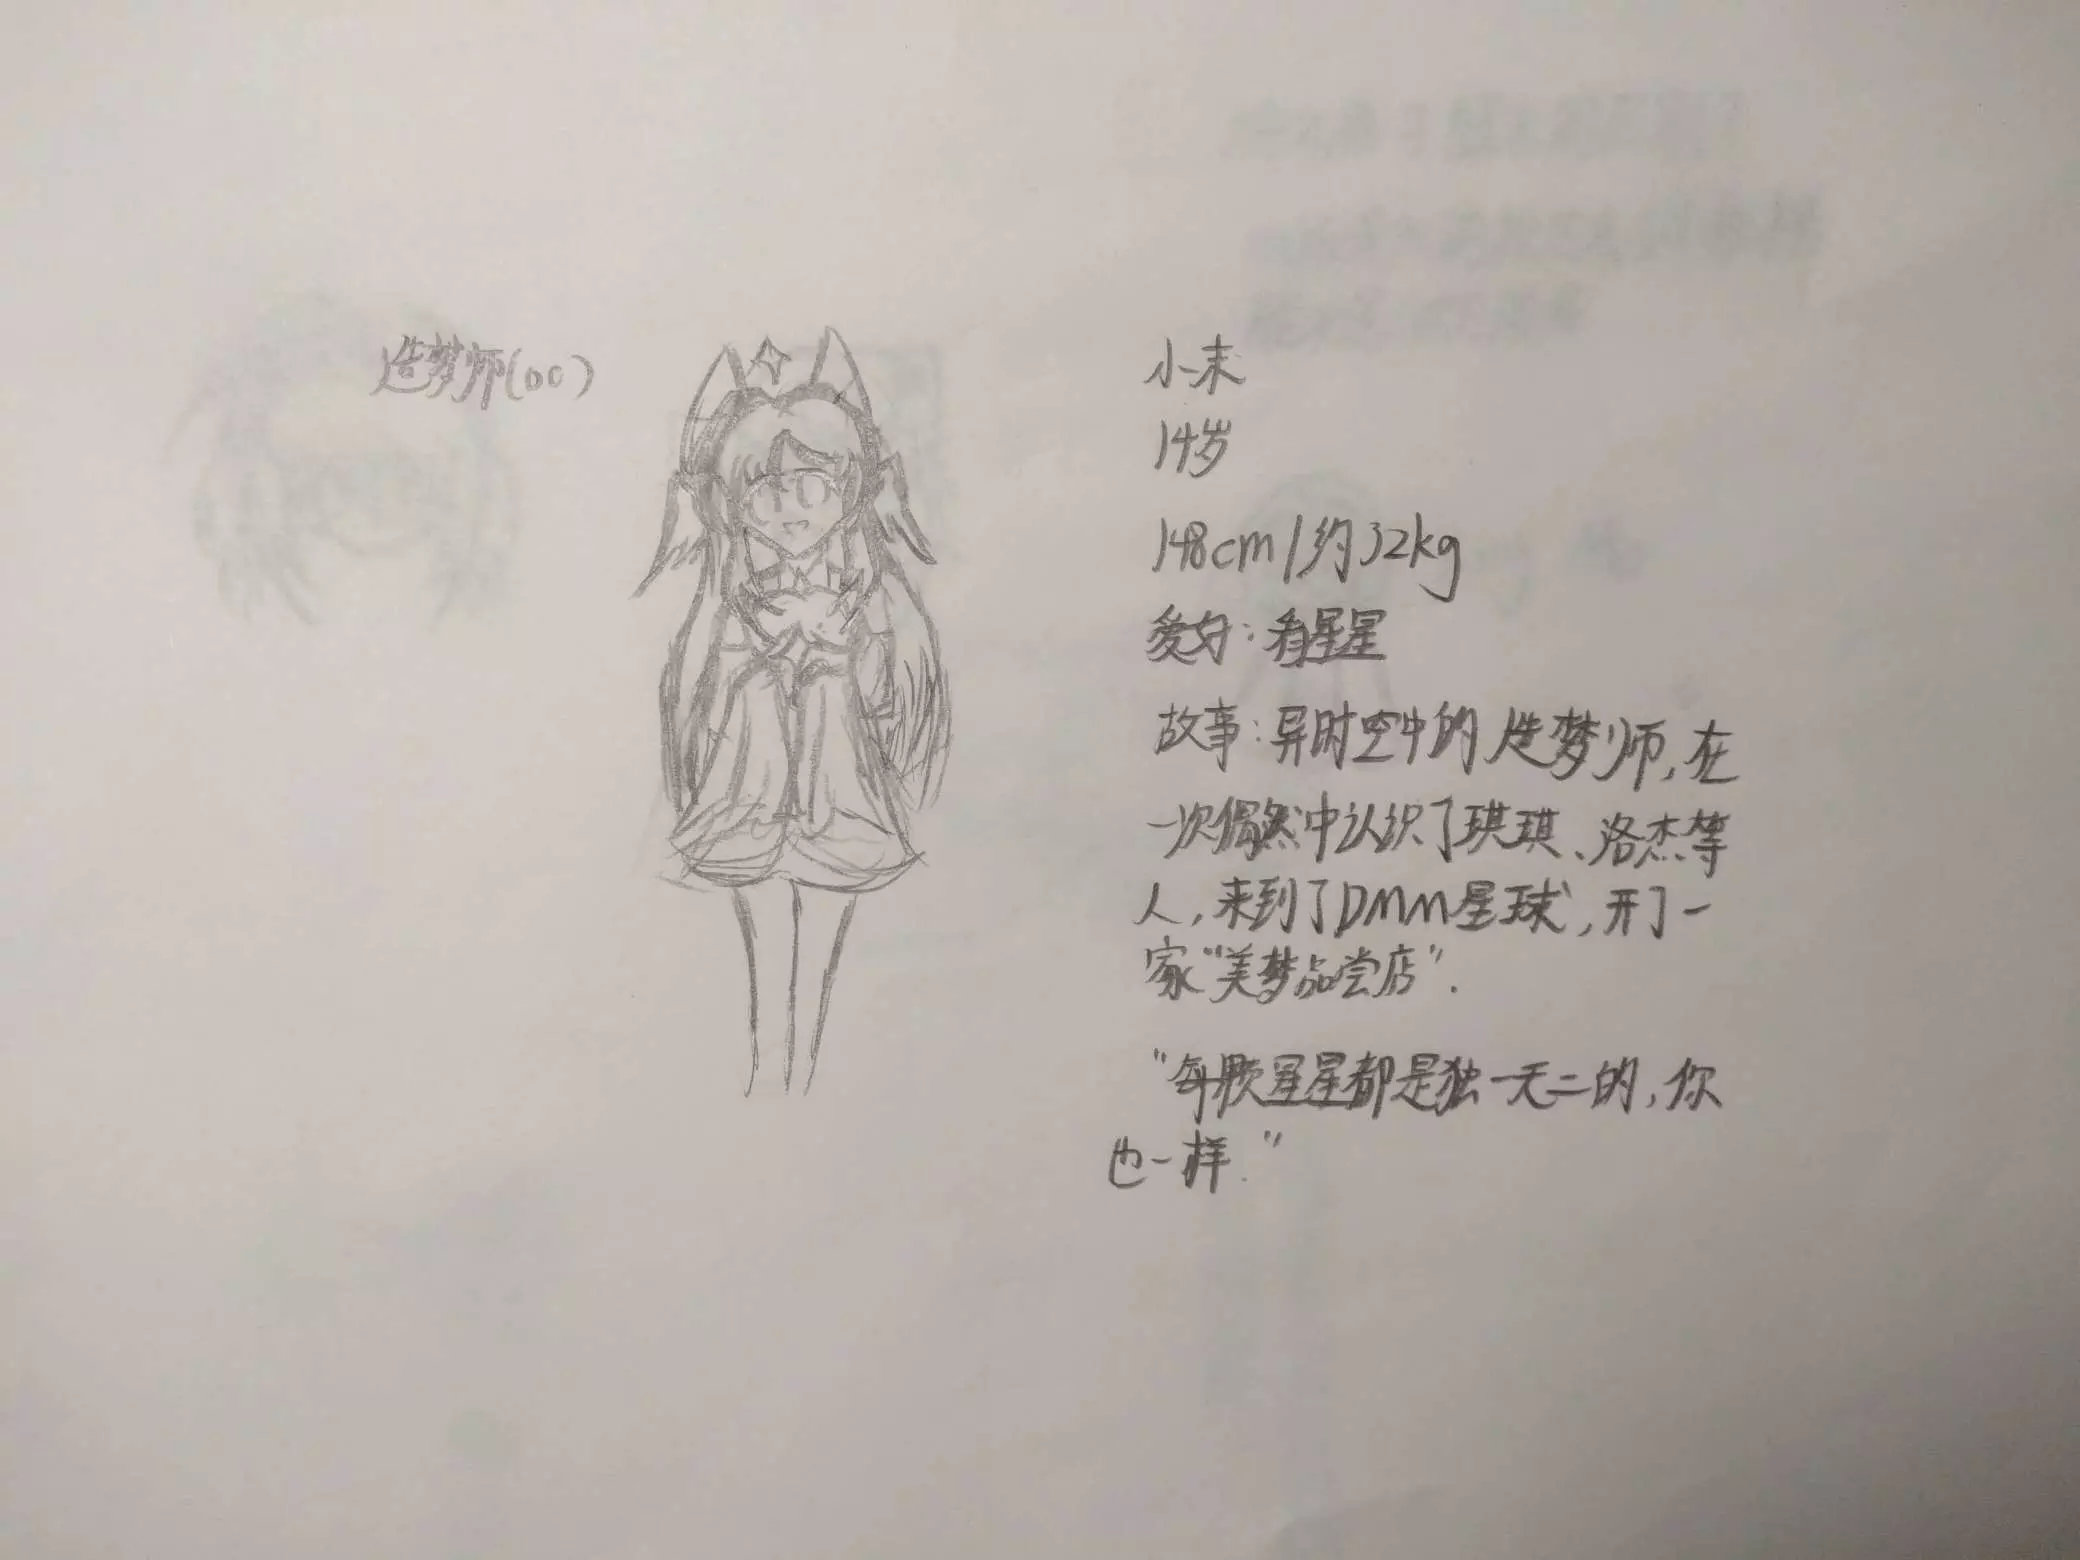 造梦师(oc)
小末
14岁
148cm/约32kg
爱好:看星星
故事:异时空中的造梦师,在
一次偶然中认识了琪琪、洛杰等
人,来到了DMM星球,开了一
家“美梦品尝店”.
“每颗星星都是独一无二的,你
也一样.”